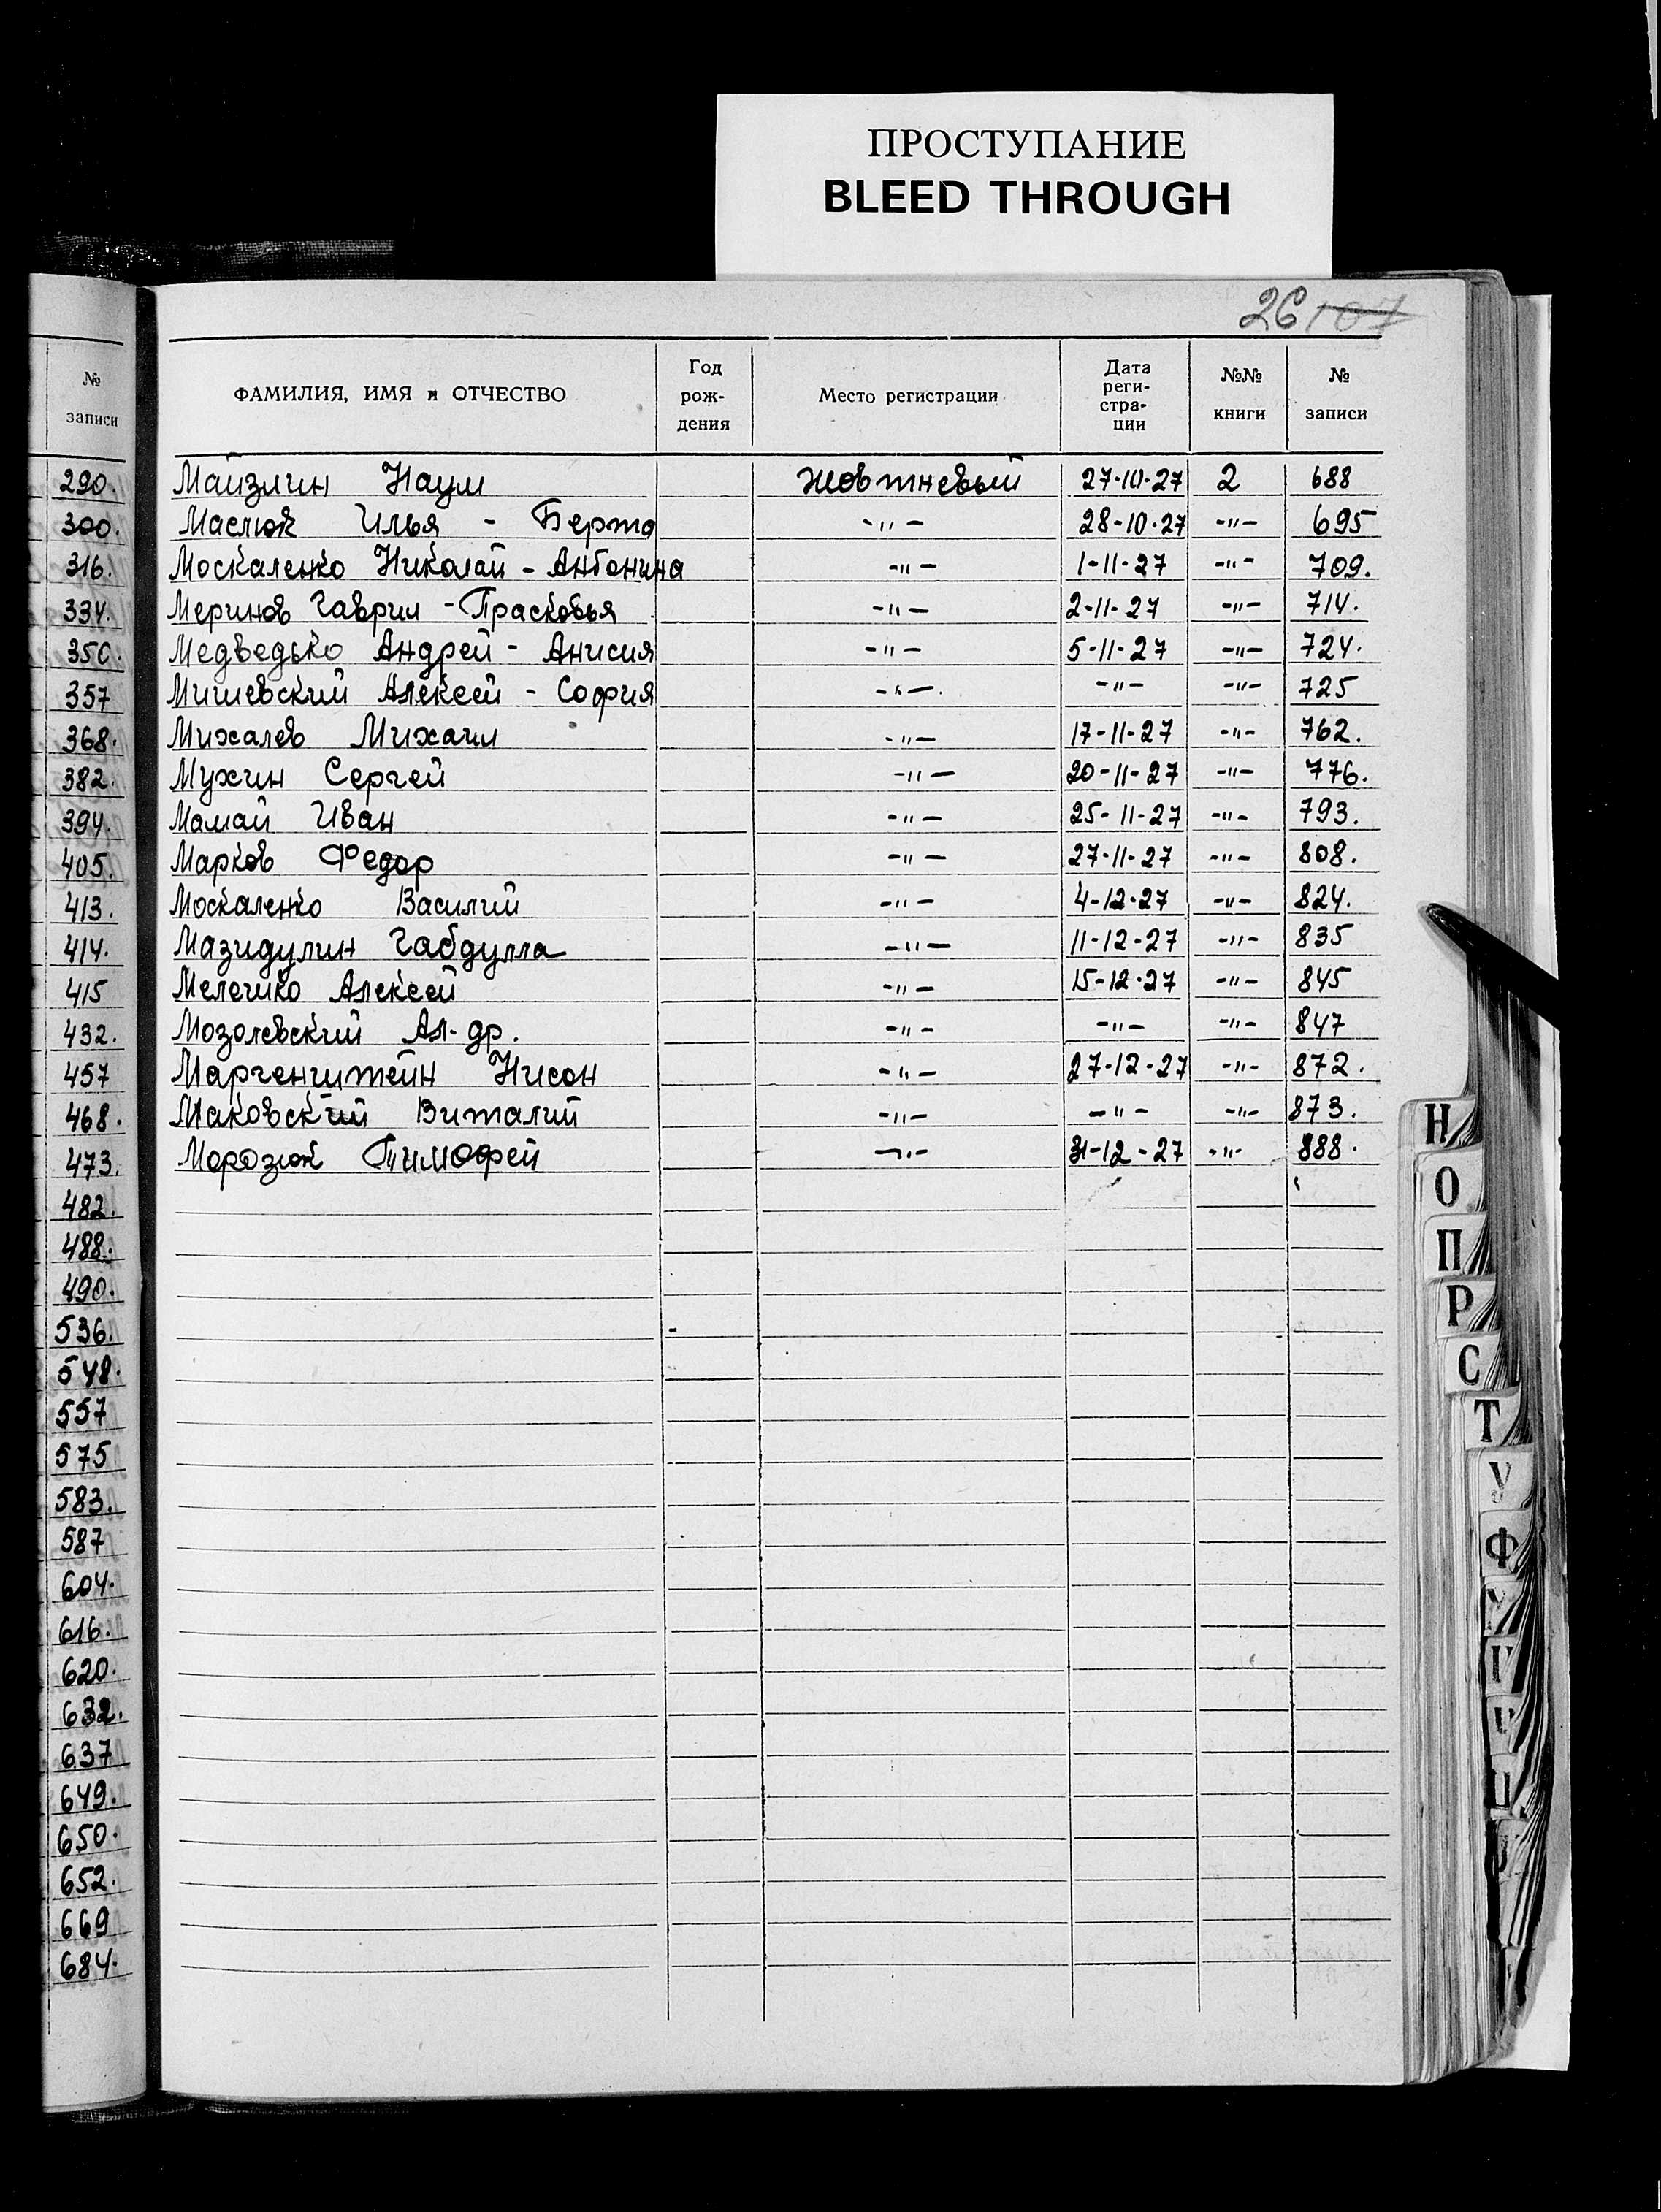 ПРОСТУПАНИЕ
BLEED THROUGH
26 107
№ записи
290.
300.
316.
334.
350.
357
368.
382.
394.
405.
413.
414.
415
432.
457
468.
473.
482.
488.
490.
536.
548.
557
575
583.
587
604.
616.
620.
632.
637
649.
650.
652.
669
684.
ФАМИЛИЯ, ИМЯ и ОТЧЕСТВО Год рож-дения Место регистрации Дата реги-стра-ции №№ книги № записи
Майзлин Наум Жовтневый 27-10-27 2 688
Маслюк Илья - Берта -"- 28-10-27 -"- 695
Москаленко Николай - Антонина -"- 1-11-27 -"- 709.
Меринов Гаврил - Прасковья -"- 2-11-27 -"- 714.
Медведько Андрей - Анисия -"- 5-11-27 -"- 724.
Мишевский Алексей - София -"- -"- -"- 725
Михалев Михаил -"- 17-11-27 -"- 762.
Мухин Сергей -"- 20-11-27 -"- 776.
Мамай Иван -"- 25-11-27 -"- 793.
Марков Федор -"- 27-11-27 -"- 808.
Москаленко Василий -"- 4-12-27 -"- 824.
Мазидулин Габдулла -"- 11-12-27 -"- 835
Мелешко Алексей -"- 15-12-27 -"- 845
Мозолевский Ал-др. -"- -"- -"- 847
Маргенштейн Нисон -"- 27-12-27 -"- 872.
Маковский Виталий -"- -"- -"- 873.
Морозюк Тимофей -"- 31-12-27 -"- 888.
Н
О
П
Р
С
Т
У
Ф